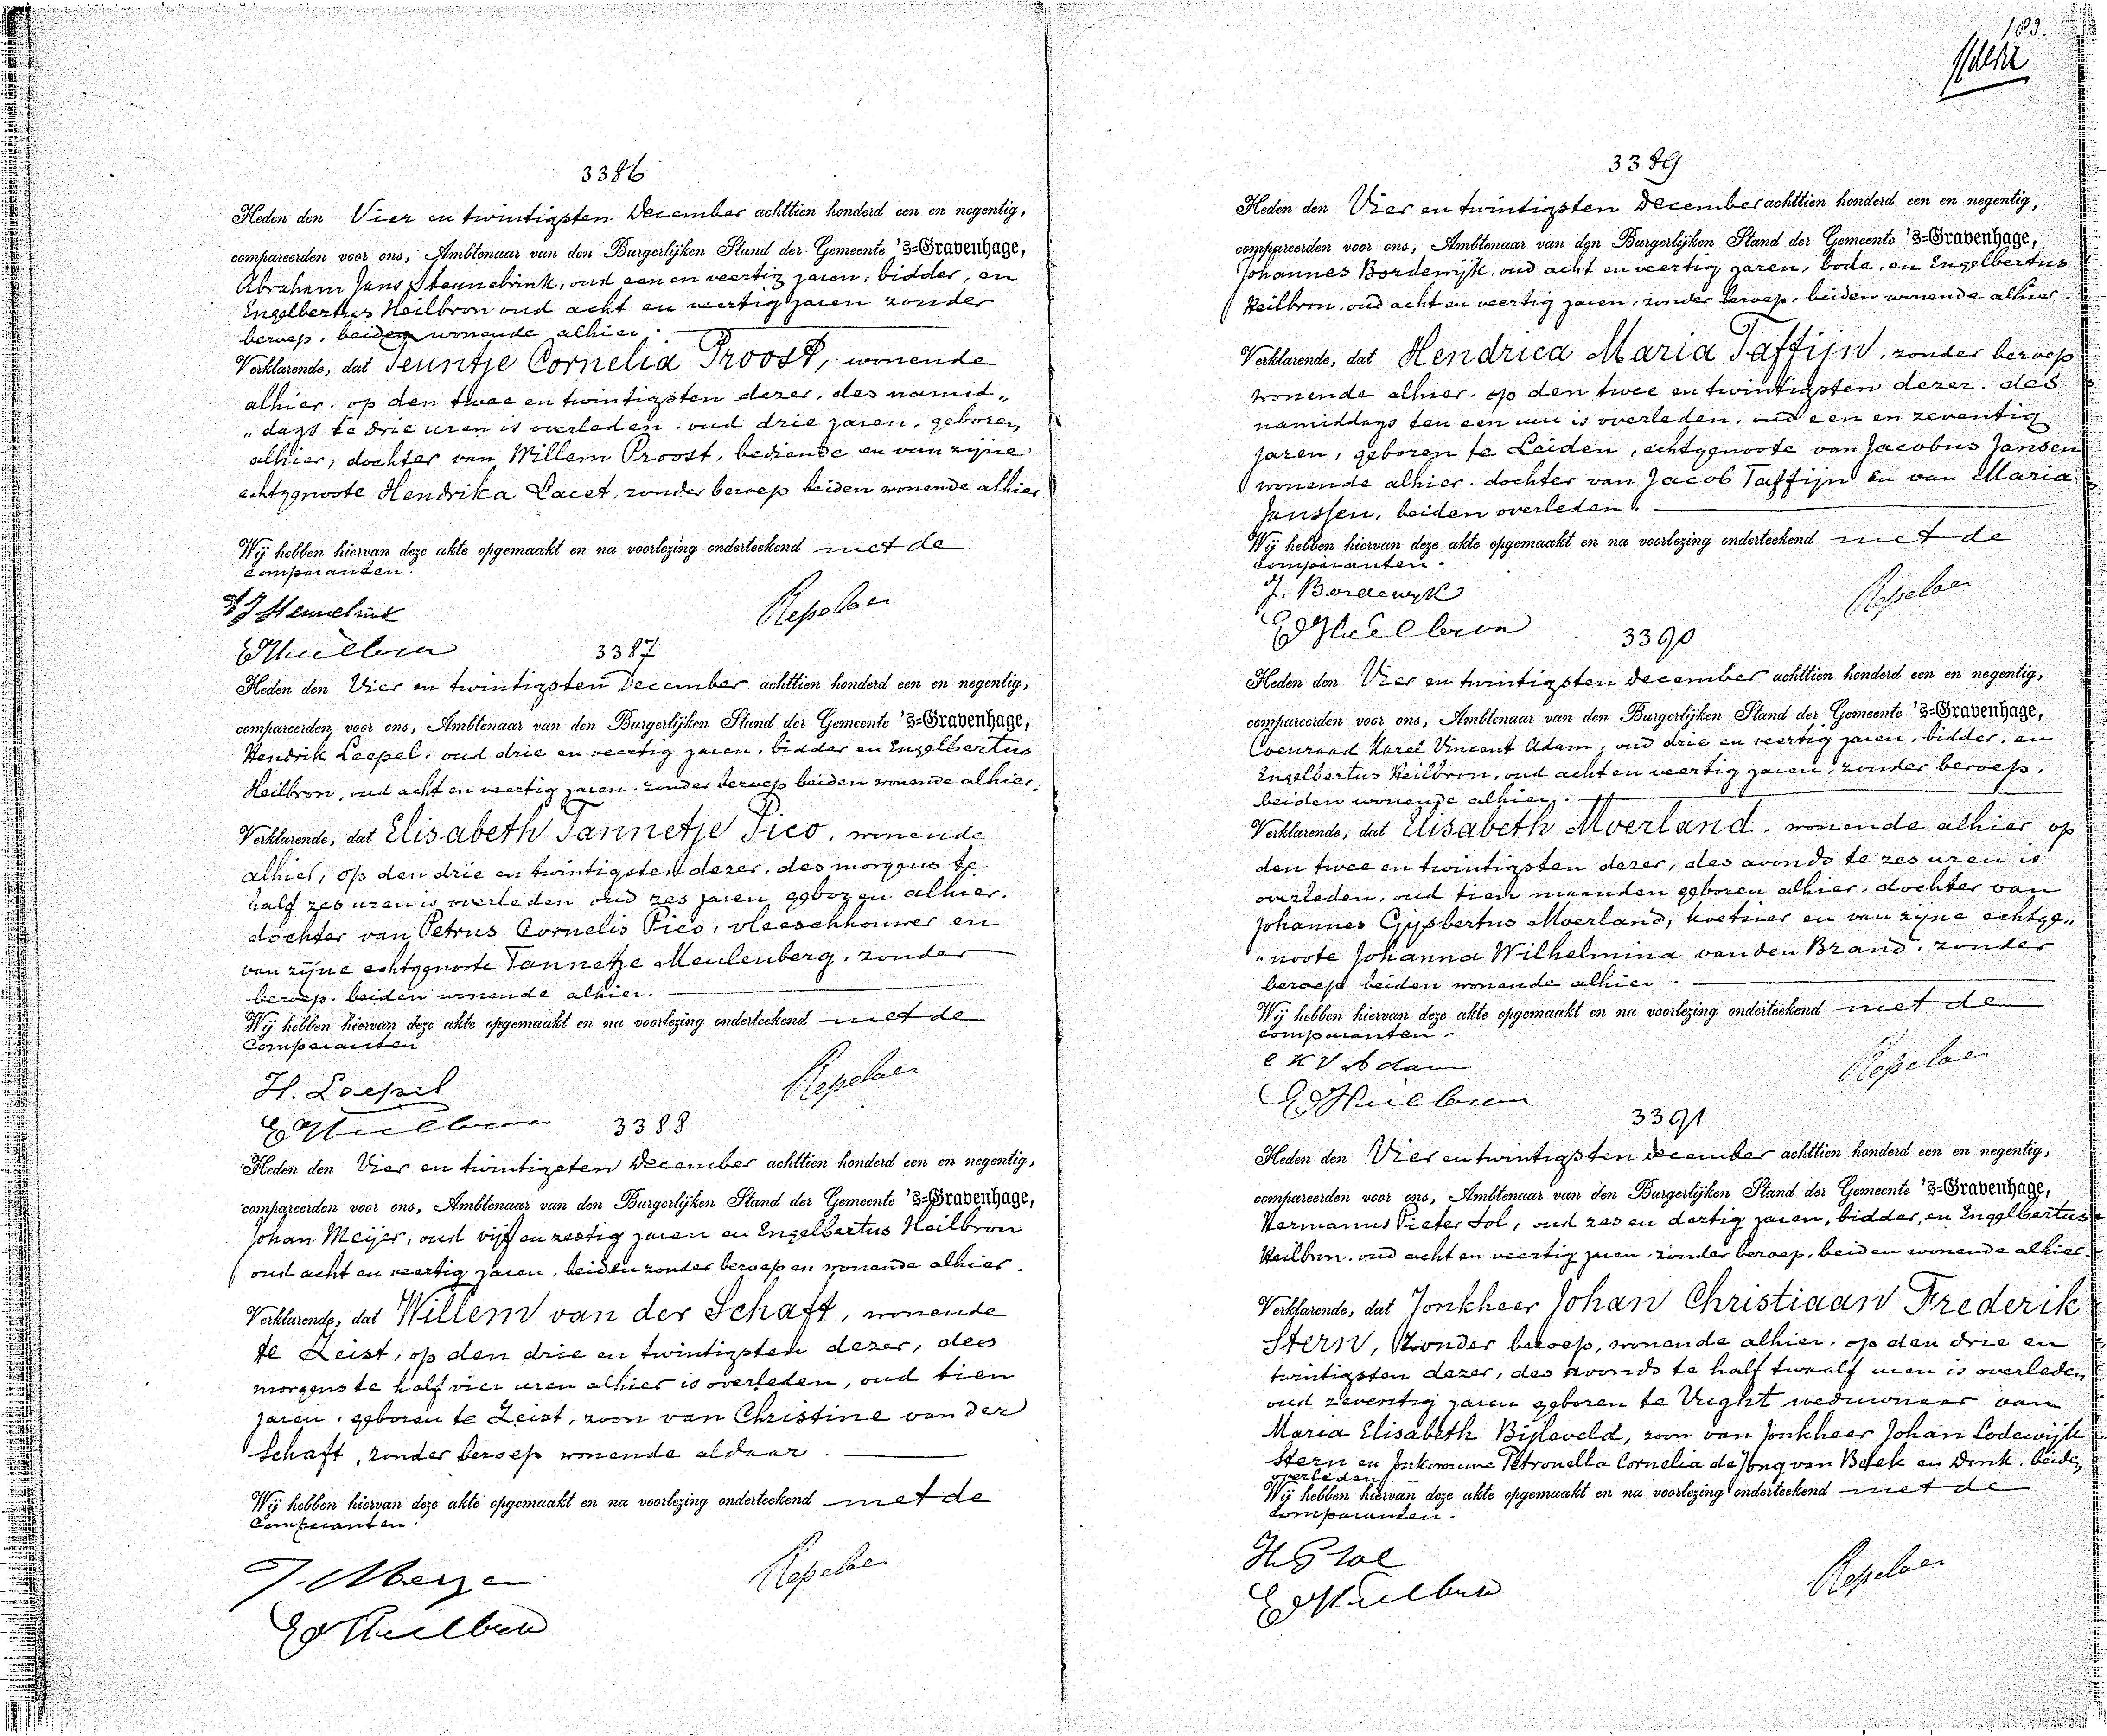 3386
Heden den Vier en twintigsten December achttien honderd een en negentig,
compareerden voor ons, Ambtenaar van den Burgerlijken Stand der Gemeente 's-Gravenhage,
Abraham Jans Stennebrink, oud een en veertig jaren, bidder, en
Engelbertus Heilbron oud acht en veertig jaren zonder
beroep, beiden wonende alhier.
Verklarende, dat Teuntje Cornelia Proost, wonende
alhier, op den twee en twintigsten dezer, des namid„
„dags te drie uren is overleden, oud drie jaren, geboren
alhier, dochter van Willem Proost, bediende en van zijne
echtgenoote Hendrika Lacet, zonder beroep beiden wonende alhier.
Wij hebben hiervan deze akte opgemaakt en na voorlezing onderteekend met de
Comparanten.
Repelaer
EHeilbron
3387
Heden den Vier en twintigsten December achttien honderd een en negentig,
compareerden voor ons, Ambtenaar van den Burgerlijken Stand der Gemeente 's-Gravenhage,
Hendrik Leepel, oud drie en veertig jaren, bidder en Engelbertus
Heilbron, oud acht en veertig jaren, zonder beroep beiden wonende alhier.
Verklarende, dat Elisabeth Tannetje Pico, wonende
alhier, op den drie en twintigsten dezer, des morgens te
half zes uren is overleden oud zes jaren geboren alhier,
dochter van Petrus Cornelis Pico, vleeschhouwer en
van zijne echtgenoote Tannetje Meulenberg, zonder
beroep, beiden wonende alhier.
Wij hebben hiervan deze akte opgemaakt en na voorlezing onderteekend met de
Comparanten
H. Leepel
Repelaer
EHeilbron
3388
Heden den Vier en twintigsten December achttien honderd een en negentig,
compareerden voor ons, Ambtenaar van den Burgerlijken Stand der Gemeente 's-Gravenhage,
Johan Meijer, oud vijf en zestig jaren en Engelbertus Heilbron
oud acht en veertig jaren, beiden zonder beroep en wonende alhier.
Verklarende, dat Willem van der Schaft, wonende
te Zeist, op den drie en twintigsten dezer, des
morgens te half vier uren alhier is overleden, oud tien
jaren, geboren te Zeist, zoon van Christine van der
Schaft, zonder beroep wonende aldaar.
Wij hebben hiervan deze akte opgemaakt en na voorlezing onderteekend met de
Comparanten.
Repelaer
EHeilbron
183.
3389
Heden den Vier en twintigsten December achttien honderd een en negentig,
compareerden voor ons, Ambtenaar van den Burgerlijken Stand der Gemeente 's-Gravenhage,
Johannes Bordewijk, oud acht en veertig jaren, bode, en Engelbertus
Heilbron, oud acht en veertig jaren, zonder beroep, beiden wonende alhier.
Verklarende, dat Hendrica Maria Taffijn, zonder beroep
wonende alhier, op den twee en twintigsten dezer, des
namiddags ten een uur is overleden, oud een en zeventig
jaren, geboren te Leiden, echtgenoote van Jacobus Jansen
wonende alhier, dochter van Jacob Taffijn en van Maria
Janssen, beiden overleden.
Wij hebben hiervan deze akte opgemaakt en na voorlezing onderteekend met de
Comparanten.
J. Bordewyk
Repelaer
EHeilbron
3390
Heden den Vier en twintigsten December achttien honderd een en negentig,
compareerden voor ons, Ambtenaar van den Burgerlijken Stand der Gemeente 's-Gravenhage,
Coenraad Karel Vincent Adam, oud drie en veertig jaren, bidder, en
Engelbertus Heilbron, oud acht en veertig jaren, zonder beroep,
beiden wonende alhier.
Verklarende, dat Elisabeth Moerland, wonende alhier op
den twee en twintigsten dezer, des avonds te zes uren is
overleden, oud tien maanden geboren alhier, dochter van
Johannes Gijsbertus Moerland, koetsier en van zijne echtge„
„noote Johanna Wilhelmina van den Brand, zonder
beroep beiden wonende alhier.
Wij hebben hiervan deze akte opgemaakt en na voorlezing onderteekend met de
Comparanten.
C K V Adam
Repelaer
EHeilbron
3391
Heden den Vier en twintigsten December achttien honderd een en negentig,
compareerden voor ons, Ambtenaar van den Burgerlijken Stand der Gemeente 's-Gravenhage,
Hermanus Pieter Sol, oud zes en dertig jaren, bidder, en Engelbertus
Heilbron, oud acht en veertig jaren, zonder beroep, beiden wonende alhier.
Verklarende, dat Jonkheer Johan Christiaan Frederik
Stern, zonder beroep, wonende alhier, op den drie en
twintigsten dezer, des avonds te half twaalf uren is overleden
oud zeventig jaren geboren te Vught weduwnaar van
Maria Elisabeth Bijleveld, zoon van Jonkheer Johan Lodewijk
Stern en Jonkvrouwe Petronella Cornelia de Jong van Beek en Donk, beiden
overleden
Wij hebben hiervan deze akte opgemaakt en na voorlezing onderteekend met de
Comparanten.
HPSol
Repelaer
EHeilbron